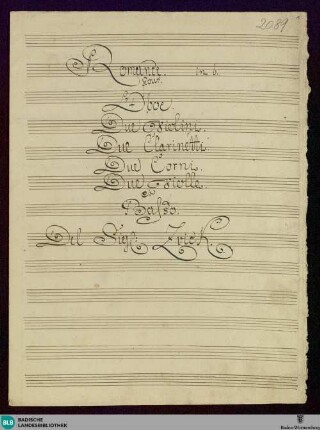 2089
Romance in G.
Pour
L'Oboe.
Due Violini.
Due Clarinetti
Due Corni.
Due Violle.
e
Basso.
Del Sigl:
BLB BADISCHE
LANDESBIBLIOTHEK
Baden-Württemberg